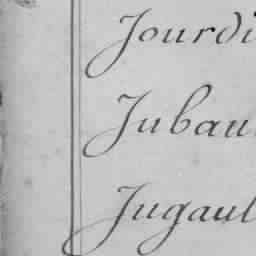 Jourdi
Jubau
Jugaul